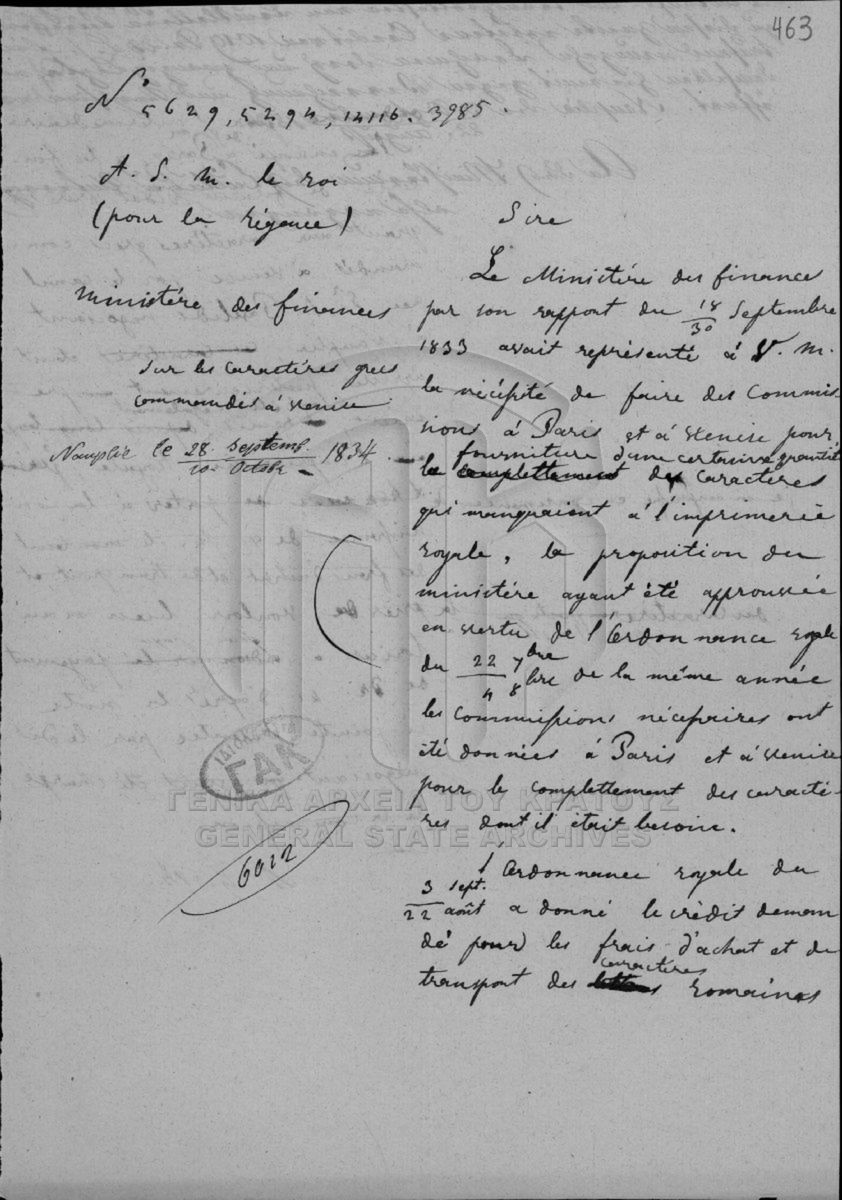 463
No 5629, 5294, 14116. 3985.
A. S. M. le roi
(pour la régence)
Ministére des finances
sur les caractéres grecs
commandés à Venise
Nauplie le 28. Septemb. / 10. Octobr 1834.
6012
Sire
Le Ministére des finances
par son rapport du 18/30 Septembre
1833 avait représenté à V. M.
la nécéssité de faire des Commis
sions à Paris et à Venise pour
fourniture d'une certaine quantité
le complettement des caractéres
qui manquaient à l'imprimerie
royale, la proposition du
ministére ayant été approuvée
en vertu de l'Ordonnance royale
du 22 7bre / 4 8bre de la même année
les Commissions nécéssaires ont
été données à Paris et à Venise
pour le complettement des caracté-
res dont il était besoin.
l'Ordonnance royale du
3 sept. / 22 août a donné le crédit deman
dé pour les frais d'achat et de
caractéres
transport des lettres romaines
ΓΑΚ
ΓΕΝΙΚΑ ΑΡΧΕΙΑ ΤΟΥ ΚΡΑΤΟΥΣ
GENERAL STATE ARCHIVES